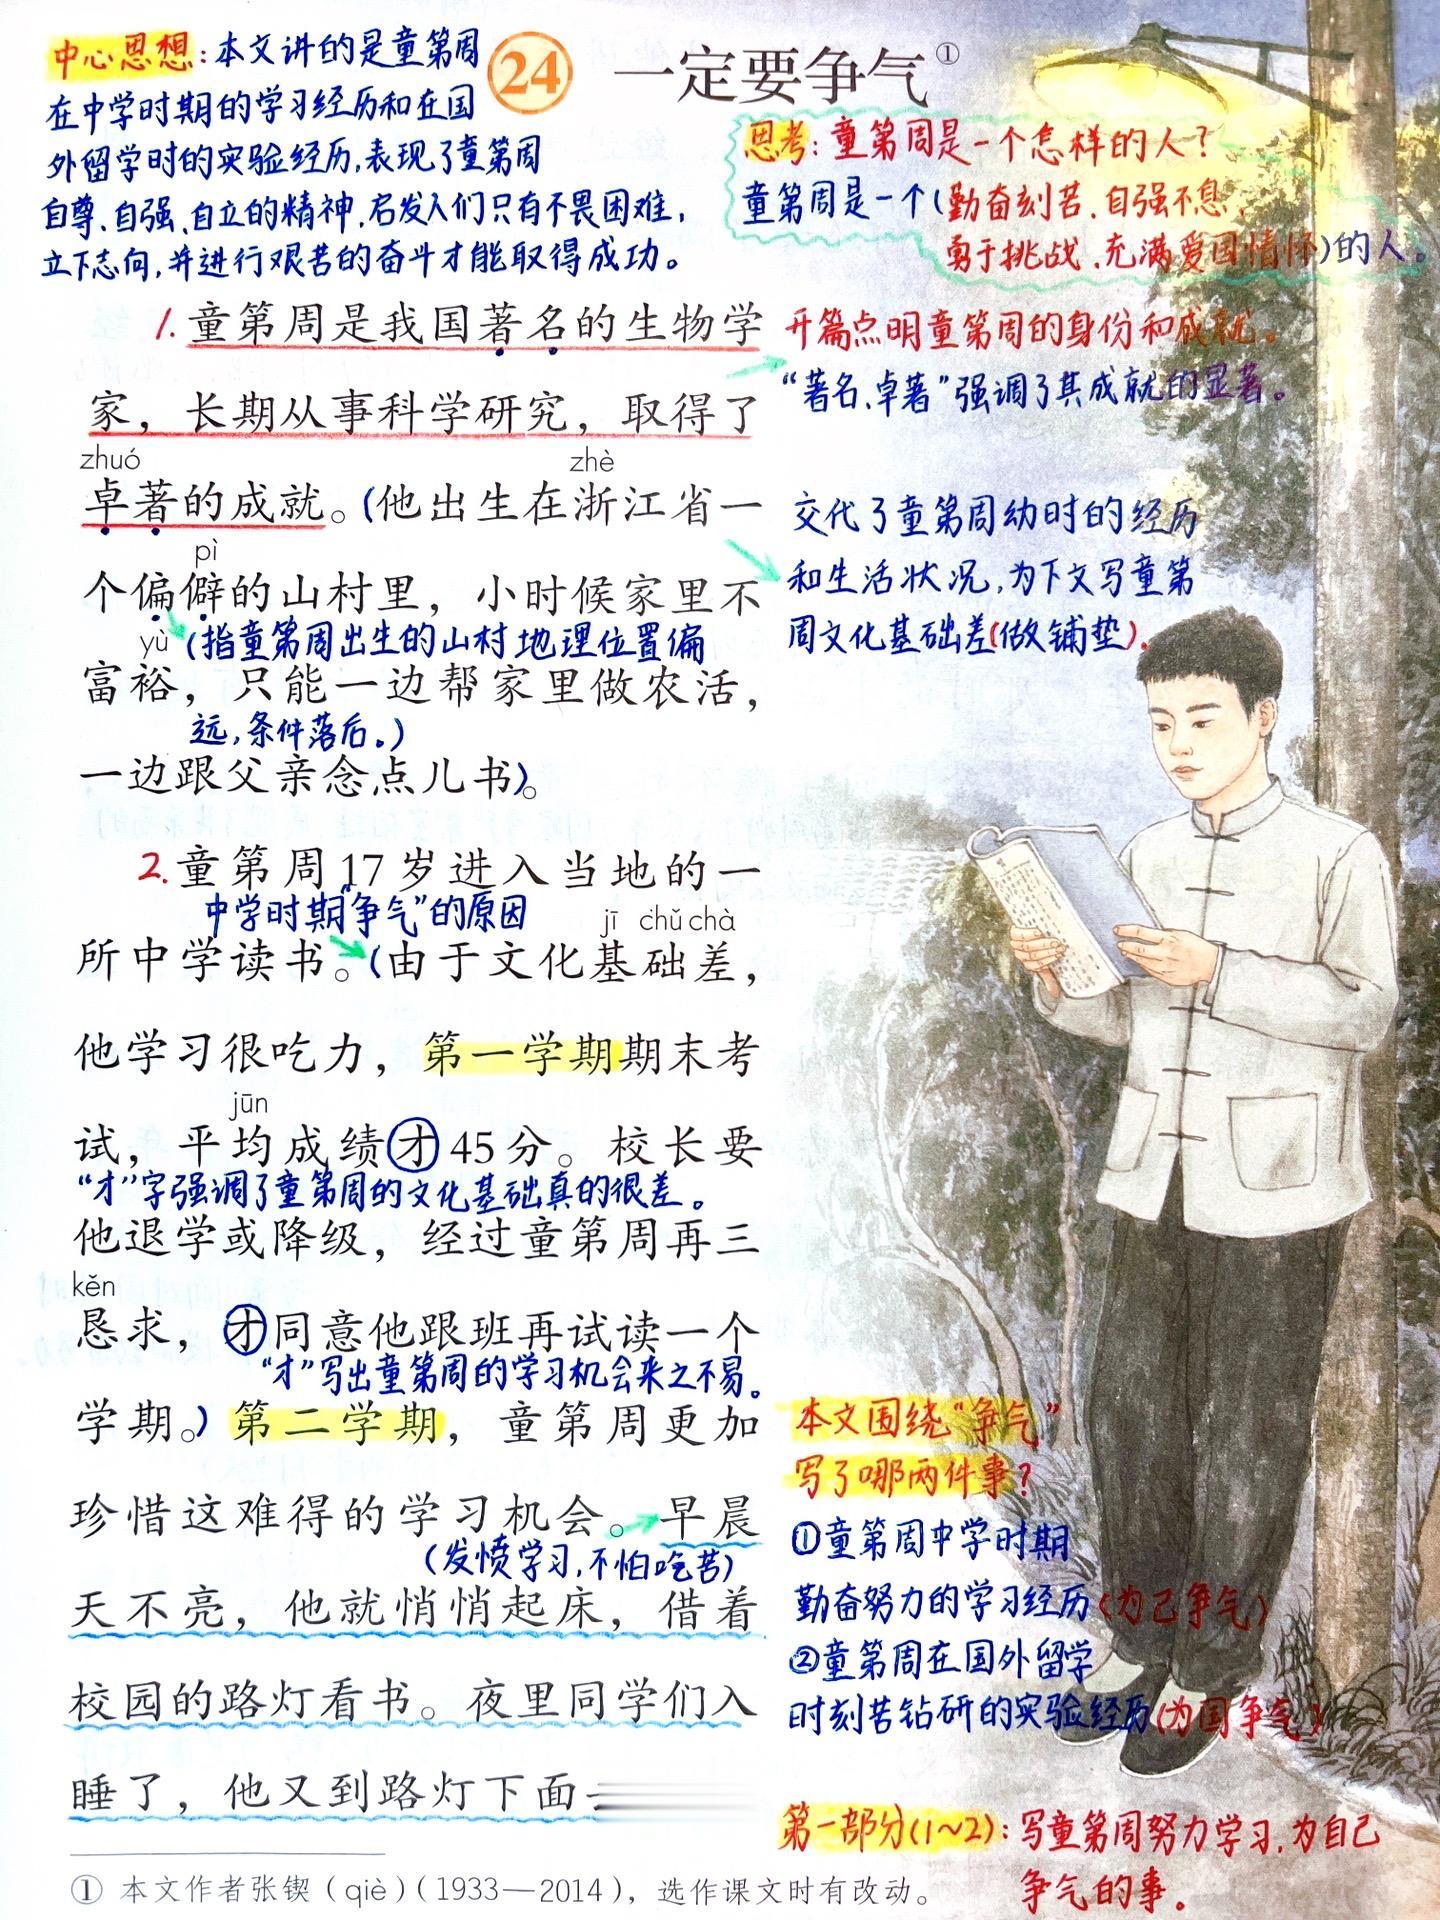 中心思想：本文讲的是童第周
在中学时期的学习经历和在国
外留学时的实验经历，表现了童第周
自尊、自强、自立的精神，启发人们只有不畏困难，
立下志向，并进行艰苦的奋斗才能取得成功。
24 一定要争气①
思考：童第周是一个怎样的人？
童第周是一个(勤奋刻苦、自强不息、
勇于挑战、充满爱国情怀)的人。
1.童第周是我国著名的生物学
家，长期从事科学研究，取得了
zhuó zhè
卓著的成就。(他出生在浙江省一
pì
个偏僻的山村里，小时候家里不
yù (指童第周出生的山村地理位置偏
富裕，只能一边帮家里做农活，
远，条件落后。)
一边跟父亲念点儿书)。
开篇点明童第周的身份和成就。
“著名、卓著”强调了其成就的显著。
交代了童第周幼时的经历
和生活状况，为下文写童第
周文化基础差(做铺垫)。
2.童第周17岁进入当地的一
中学时期“争气”的原因
jī chǔ chà
所中学读书。(由于文化基础差，
他学习很吃力，第一学期期末考
jūn
试，平均成绩才45分。校长要
“才”字强调了童第周的文化基础真的很差。
他退学或降级，经过童第周再三
kěn
恳求，才同意他跟班再试读一个
“才”写出童第周的学习机会来之不易。
学期。)第二学期，童第周更加
珍惜这难得的学习机会。早晨
(发愤学习，不怕吃苦)
天不亮，他就悄悄起床，借着
校园的路灯看书。夜里同学们入
睡了，他又到路灯下面
本文围绕“争气”
写了哪两件事？
①童第周中学时期
勤奋努力的学习经历(为己争气)
②童第周在国外留学
时刻苦钻研的实验经历(为国争气)
第一部分(1~2)：写童第周努力学习，为自己
争气的事。
① 本文作者张锲（qiè）（1933—2014），选作课文时有改动。